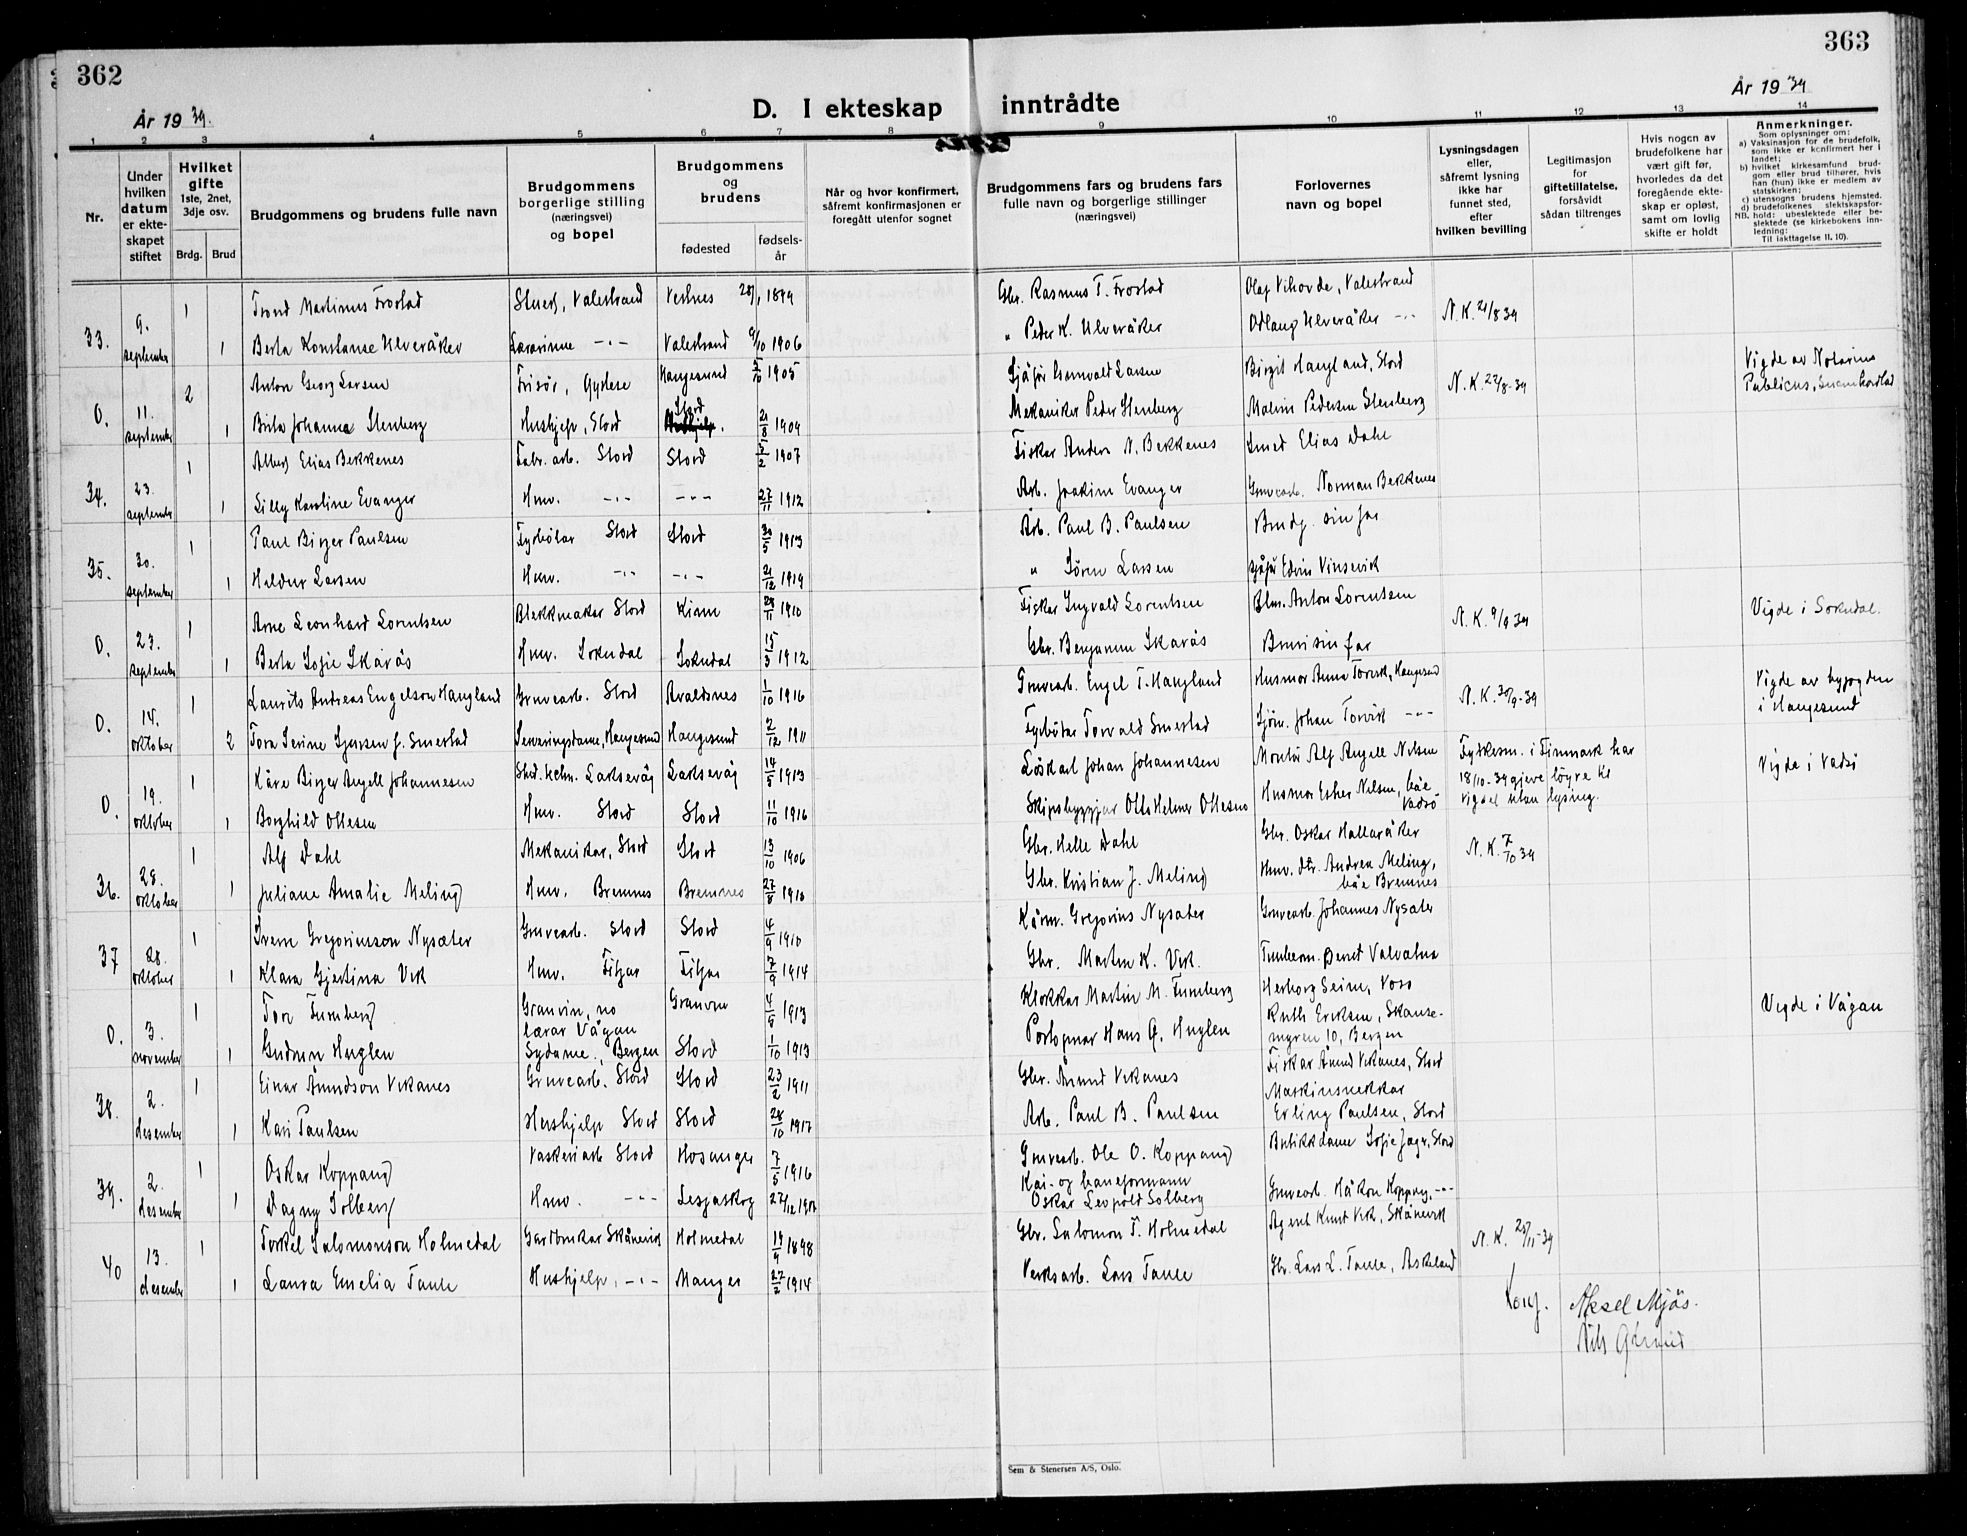 362
363
År 19 39.
År 19 39
D. I ekteskap inntrådte
1 2 3 4 5 6 7 8 9 10 11 12 13 14
Nr.
Under
hvilken
datum
er ekte-
skapet
stiftet
Hvilket
gifte
1ste, 2net,
3dje osv.
Brdg. Brud
Brudgommens og brudens fulle navn
Brudgommens
borgerlige stilling
(næringsvei)
og bopel
Brudgommens
og
brudens
fødested
fødsels-
år
Når og hvor konfirmert,
såfremt konfirmasjonen er
foregått utenfor sognet
Brudgommens fars og brudens fars
fulle navn og borgerlige stillinger
(næringsvei)
Forlovernes
navn og bopel
Lysningsdagen
eller,
såfremt lysning
ikke har
funnet sted,
efter
hvilken bevilling
Legitimasjon
for
giftetillatelse,
forsåvidt
sådan tiltrenges
Hvis nogen av
brudefolkene har
vært gift før,
hvorledes da det
foregående ekte-
skap er opløst,
samt om lovlig
skifte er holdt
Anmerkninger.
Som oplysninger om:
a) Vaksinasjon for de brudefolk,
som ikke er konfirmert her i
landet;
b) hvilket kirkesamfund brud-
gom eller brud tilhører, hvis
han (hun) ikke er medlem av
statskirken;
c) utensogns brudens hjemsted.
d) brudefolkenes slektskapsfor-
NB. hold: ubeslektede eller be-
slektede (se kirkebokens inn-
ledning:
Til iakttagelse II. 10).
33. 9. september
1 Trond Martinus Frostad Valestrand Vestnes 28/1 1899 Gbr. Rasmus T. Frostad Olav Vihovde, Valestrand N.K. 21/8 39
1 Berta Konstanse Ulveråker Lærarinne -"- Valestrand 9/10 1906 " Peder K. Ulveråker Odlaug Ulveråker -"-
0. 11. september
2 Anton Georg Larsen Frisør, Haugesund 5/10 1905 Larsen Birgit Haugland, Stord N.K. 22/8-39 Vigde av Notarius
Publicus, Sunnhordland
1 Berta Johanna Stenberg Hushjelp, Stord Stord 21/8 1909 Mekaniker Peder Stenberg Malvin Pedersen Stenberg
34. 23. september
1 Albert Elias Bekkenes Fabr. arb. Stord Stord 5/2 1907 Fiskar Anders N. Bekkenes Smed Elias Dahl
1 Lilly Karoline Evanger Hmv. -"- -"- 27/11 1912 Arb. Joakim Evanger Gruvearb. Norman Bekkenes
35. 30. september
1 Paul Birger Paulsen Fyrbøtar Stord Stord 30/5 1913 Arb. Paul B. Paulsen Brudg. sin far
1 Hildur Larsen Hmv. -"- -"- 21/12 1919 " Søren Larsen Sjåfør Edvin Vinsevik
0. 23. september
1 Arne Leonhard Lorentsen Blekkmakar Stord Kinn 28/11 1910 Fiskar Ingvald Lorentsen Blm. Anton Lorentsen N.K. 9/9 39 Vigde i Sokndal.
1 Berta Sofie Skarås Hmv. Sokndal Sokndal 15/3 1912 Gbr. Benjamin Skarås Bruri sin far
0. 14. oktober
1 Laurits Andreas Engelson Haugland Gruvearb. Stord Avaldsnes 1/10 1916 Gruvearb. Engel T. Haugland Husmor Anna Torvik, Haugesund N.K. 30/9-39 Vigde av byfogden
i Haugesund
2 Tora Serine Sjursen f. Smestad Serveringsdame, Haugesund Haugesund 2/12 1911 Fyrbøtar Torvald Smestad Sjøm. Johan Torvik -"-
0. 19. oktober
1 Kåre Birger Angell Johannesen Laksevåg Laksevåg 14/5 1913 Løskarl Johan Johannesen Montør Alf Angell Nilsen Fylkesm. i Finmark har
18/10-39 gjeve løyve til
vigsel utan lysing. Vigde i Vadsø
1 Borghild Ottesen Hmv. Stord Stord 11/10 1916 Skipsbyggjar Otto Helmer Ottesen Husmor Esther Nilsen, båe
Vadsø
36. 28. oktober
1 Alf Dahl Mekanikar, Stord Stord 13/10 1906 Gbr. Helle Dahl Gbr. Oskar Hallaråker N.K. 7/10 39
1 Juliane Amalie Meling Hmv. Bremnes Bremnes 27/8 1910 Gbr. Kristian J. Meling Hmv. dtr. Andrea Meling,
båe Bremnes
37 28. oktober
1 Sverre Gregoriusson Nysæter Gruvearb. Stord Stord 4/9 1910 Gregorius Nysæter Gruvearb. Johannes Nysæter
1 Klara Gjertina Vik Hmv. Fitjar Fitjar 7/9 1914 Gbr. Martin K. Vik. Valvatna
0. 3. november
1 Tor Furnberg Granvin, no
lærar Vågan Granvin 4/9 1913 Klokkar Martin M. Furnberg Herborg Seim, Voss Vigde i Vågan
1 Gudrun Huglen Sydame, Bergen Stord 1/10 1913 Portopnar Hans G. Huglen Ruth Eriksen, Skanse-
myren 10, Bergen
38. 2. desember
1 Einar Åmundson Vikanes Gruvearb. Stord Stord 23/2 1911 Gbr. Åmund Vikanes Fiskar Åmund Vikanes, Stord
1 Kari Paulsen Hushjelp Stord Stord 28/10 1917 Arb. Paul B. Paulsen Maskinsnekkar
Erling Paulsen, Stord
39. 2. desember
1 Oskar Koppang Vaskeriarb Stord Hosanger 7/5 1916 Gruvearb. Ole O. Koppang Butikkdame Sofie Stord
1 Dagny Solberg Hmv. -"- Lesjaskog 27/12 Kai- og baneformann
Oskar Leopold Solberg Gruvearb. Håkon Koppang, -"-
40 13. desember
1 Torkel Salomonson Holmedal Gardbrukar Skånevik Holmedal 19/9 1898 Gbr. Salomon T. Holmedal Agent Knut Vik, Skånevik N.K. 25/11-39
1 Laura Emelia Taule Hushjelp, -"- Manger 27/2 1914 Verksarb. Lars Taule Gbr. Lars L. Taule, Askeland
Konf. Aksel Mjøs.
Nils
Sem & Stenersen A/S, Oslo.